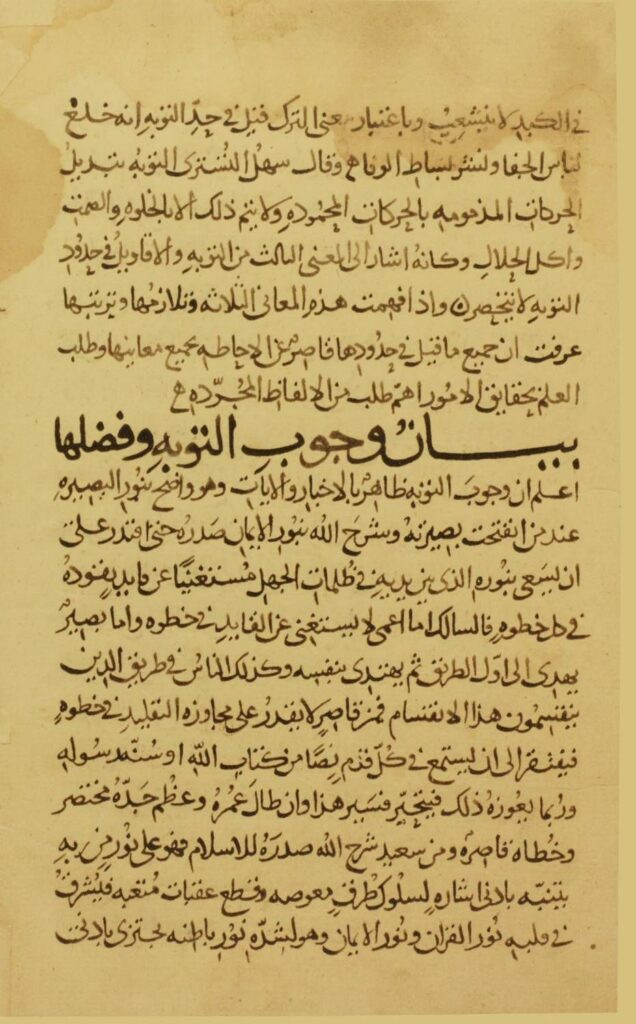 في الكبد لا تنشعب وباعتبار معنى الترك قيل في حد التوبه انه خلع
لباس الجفا ونشر بساط الوفا ه وقال سهل التستري التوبه تبديل
الحركات المذمومه بالحركات المحموده ولا يتم ذلك الا بالخلوه والصمت
واكل الحلال وكانه اشار الى المعنى الثالث من التوبه والاقاويل في حدود
التوبه لا تنحصر ن واذا فهمت هذه المعاني الثلاثه وتلازمها وترتيبها
عرفت ان جميع ما قيل في حدودها قاصر عن الاحاطه بجميع معانيها وطلب
العلم بحقايق الامور اهم من طلب الالفاظ المجرده ه
بيان وجوب التوبه وفضلها
اعلم ان وجوب التوبه ظاهر بالاخبار والايات وهو واضح بنور البصيره
عند من انفتحت بصيرته وشرح الله بنور الايمان صدره حتى اقتدر على
ان يسعى بنوره الذي بين يديه في ظلمات الجهل مستغنيا عن قايد يقوده
في كل خطوه فالسالك اما اعمى لا يستغنى عن القايد في خطوه واما بصير
يهدى الى اول الطريق ثم يهتدى بنفسه وكذلك الناس في طريق الدين
ينقسمون هذا الانقسام فمن قاصر لا يقدر على مجاوزه التقليد في خطوه
فيفتقر الى ان يستمع في كل قدم نصا من كتاب الله او سنه رسوله
وربما يعوزه ذلك فيتحير فسير هذا وان طال عمره وعظم جده مختصر
وخطاه قاصره ومن سعيد شرح الله صدره للاسلام فهو على نور من ربه
يتنبه بادنى اشاره لسلوك طرق معوصه وقطع عقبات متعبه فيشرق
في قلبه نور القران ونور الايمان وهو لشده نور باطنه يجتزى بادنى